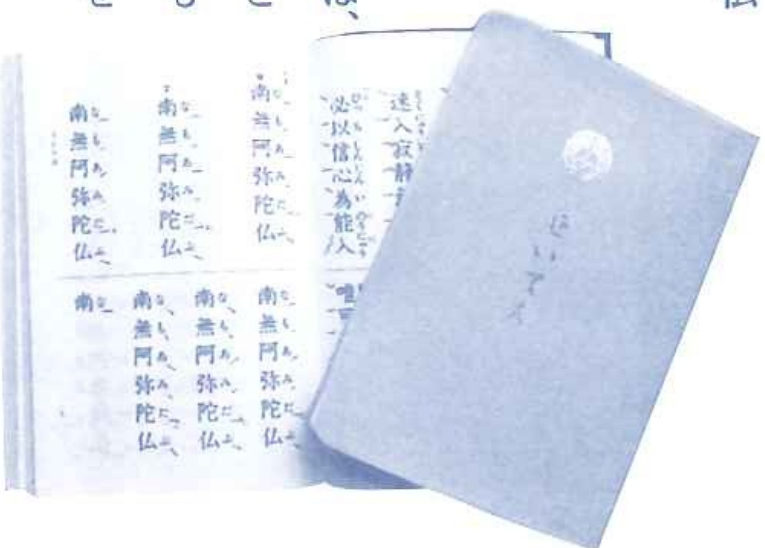 は、
速入寂静
必以信心為能入
南無阿弥陀仏
南無阿弥陀仏
南無阿弥陀仏
唯
南無阿弥陀仏
南無阿弥陀仏
南無阿弥陀仏
南